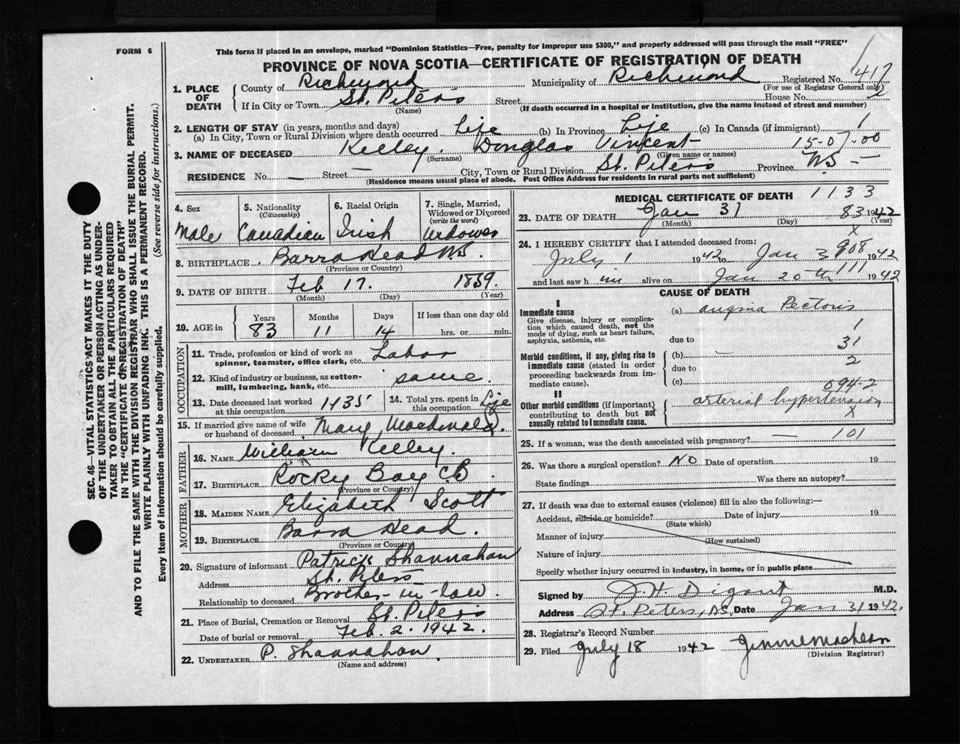 FORM 6
This form if placed in an envelope, marked "Dominion Statistics—Free, penalty for improper use $300," and properly addressed will pass through the mail "FREE"
PROVINCE OF NOVA SCOTIA—CERTIFICATE OF REGISTRATION OF DEATH
1. PLACE OF DEATH County of Richmond Municipality of Richmond Registered No. 417
(For use of Registrar General only)
If in City or Town St. Peters Street House No.
(Name) (If death occurred in a hospital or institution, give the name instead of street and number)
2. LENGTH OF STAY (in years, months and days)
(a) In City, Town or Rural Division where death occurred Life (b) In Province Life (c) In Canada (if immigrant) 1
3. NAME OF DECEASED Kelley Douglas Vincent 15-07-00
(Surname) (Given name or names)
RESIDENCE No. — Street — City, Town or Rural Division St. Peters Province NS —
(Residence means usual place of abode. Post Office Address for residents in rural parts not sufficient)
4. Sex Male
5. Nationality (Citizenship) Canadian
6. Racial Origin Irish
7. Single, Married, Widowed or Divorced (write the word) Widower
8. BIRTHPLACE Barra Head NS
(Province or Country)
9. DATE OF BIRTH Feb 17. 1859
(Month) (Day) (Year)
10. AGE in Years Months Days If less than one day old
83 11 14 hrs. or min.
OCCUPATION
11. Trade, profession or kind of work as spinner, teamster, office clerk, etc. Labor
12. Kind of industry or business, as cotton-mill, lumbering, bank, etc. same
13. Date deceased last worked at this occupation 1135 14. Total yrs. spent in this occupation Life
15. If married give name of wife or husband of deceased Mary Macdonald
FATHER
16. NAME William Kelley
17. BIRTHPLACE Rocky Bay CB
(Province or Country)
MOTHER
18. MAIDEN NAME Elizabeth Scott
19. BIRTHPLACE Barra Head
(Province or Country)
20. Signature of informant Patrick Shannahan
Address St. Peters
Relationship to deceased Brother-in-law
21. Place of Burial, Cremation or Removal St. Peters
Date of burial or removal Feb. 2. 1942
22. UNDERTAKER P. Shannahan
(Name and address)
MEDICAL CERTIFICATE OF DEATH 1133
23. DATE OF DEATH Jan 31 83 1942
(Month) (Day) (Year)
x
24. I HEREBY CERTIFY that I attended deceased from:
July 1 1942 to Jan 3 908 1942
and last saw h im alive on Jan 20th 111 1942
CAUSE OF DEATH
I
Immediate cause
Give disease, injury or complication which caused death, not the mode of dying, such as heart failure, asphyxia, asthenia, etc.
(a) angina Pectoris
1
due to 31
Morbid conditions, if any, giving rise to immediate cause (stated in order proceeding backwards from immediate cause).
(b) —
due to 2
(c) 094-2
II
Other morbid conditions (if important) contributing to death but not causally related to immediate cause.
arterial hypertension
x
25. If a woman, was the death associated with pregnancy? — 101
26. Was there a surgical operation? No Date of operation 19
State findings Was there an autopsy?
27. If death was due to external causes (violence) fill in also the following:—
Accident, suicide or homicide? Date of injury 19
(State which)
Manner of injury
(How sustained)
Nature of injury
Specify whether injury occurred in industry, in home, or in public place
Signed by J. H. Digout M.D.
Address St. Peters, N.S. Date Jan 31 1942.
28. Registrar's Record Number
29. Filed July 18 1942
(Division Registrar)
SEC. 46—VITAL STATISTICS ACT MAKES IT THE DUTY
OF THE UNDERTAKER OR PERSON ACTING AS UNDER-
TAKER TO OBTAIN ALL THE PARTICULARS REQUIRED
IN THE "CERTIFICATE OF REGISTRATION OF DEATH"
AND TO FILE THE SAME WITH THE DIVISION REGISTRAR WHO SHALL ISSUE THE BURIAL PERMIT.
WRITE PLAINLY WITH UNFADING INK. THIS IS A PERMANENT RECORD.
Every item of information should be carefully supplied. (See reverse side for instructions.)